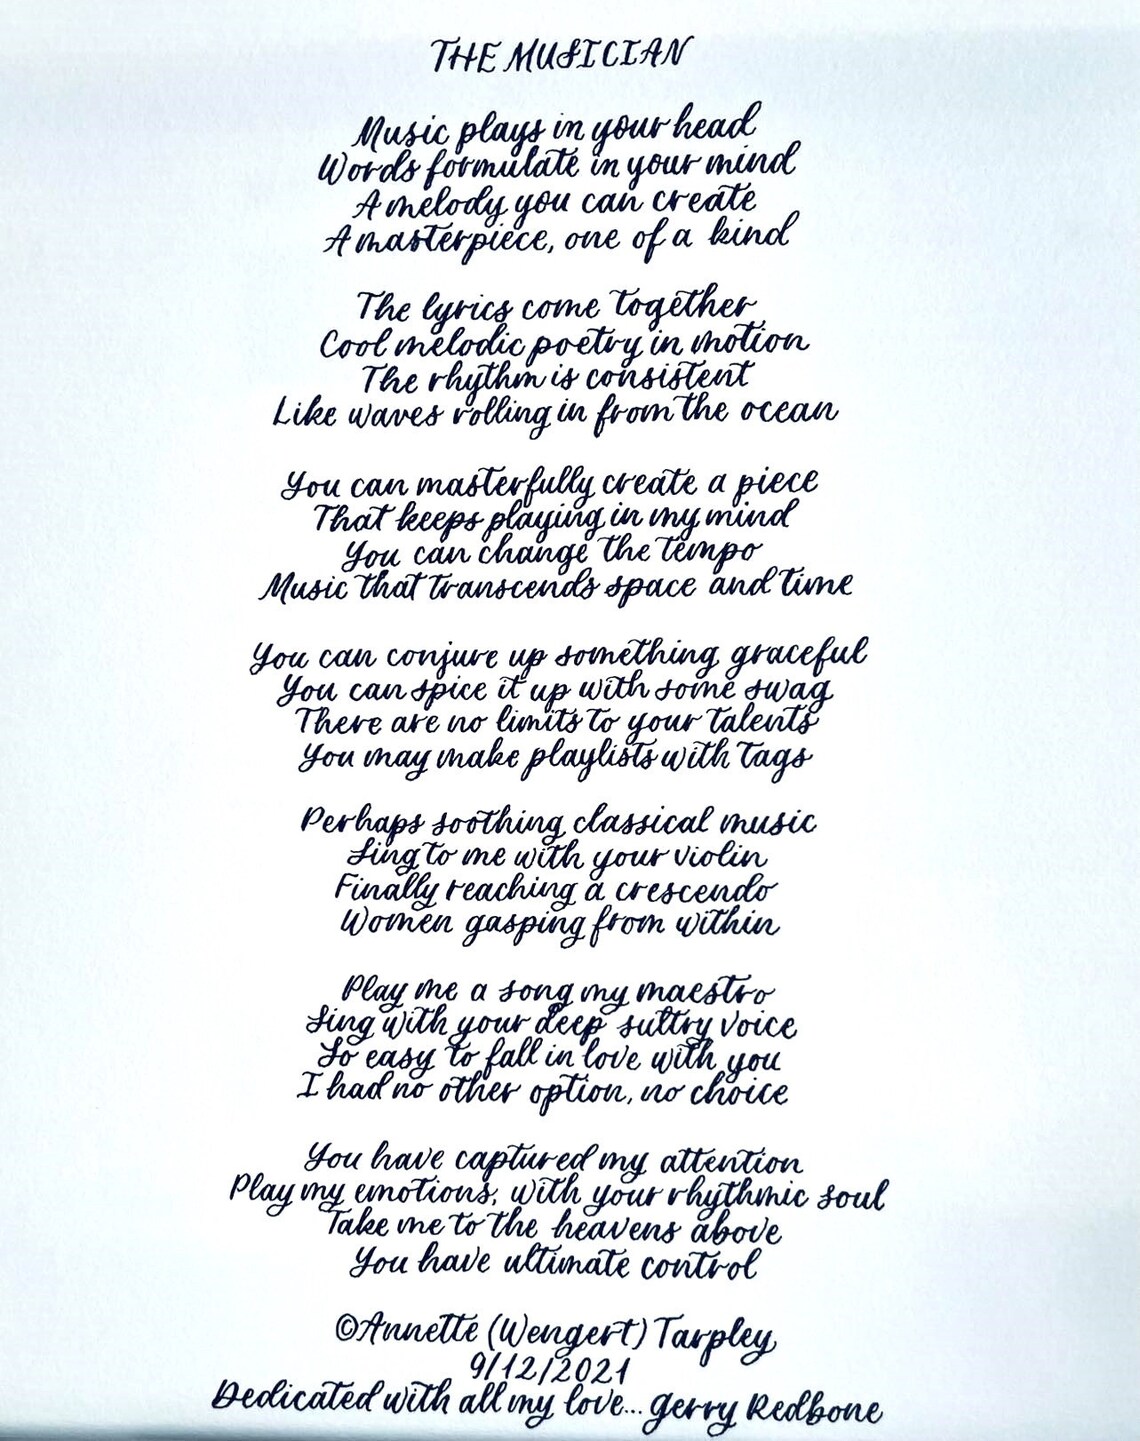 THE MUSICIAN
Music plays in your head
Words formulate in your mind
A melody you can create
A masterpiece, one of a kind
The lyrics come together
Cool melodic poetry in motion
The rhythm is consistent
Like waves rolling in from the ocean
You can masterfully create a piece
That keeps playing in my mind
You can change the tempo
Music that transcends space and time
You can conjure up something graceful
You can spice it up with some swag
There are no limits to your talents
You may make playlists with tags
Perhaps soothing classical music
Sing to me with your violin
Finally reaching a crescendo
Women gasping from within
Play me a song my maestro
Sing with your deep sultry voice
So easy to fall in love with you
I had no other option, no choice
You have captured my attention
Play my emotions, with your rhythmic soul
Take me to the heavens above
You have ultimate control
©Annette (Wengert) Tarpley
9/12/2021
Dedicated with all my love... Gerry Redbone